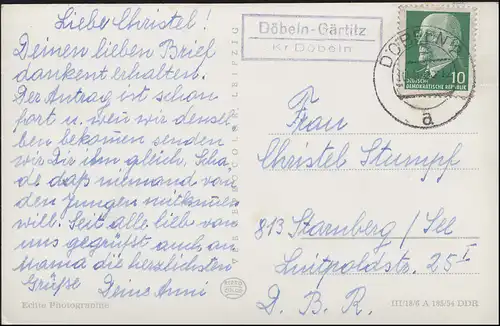 Liebe Christel!
Deinen lieben Brief
dankent erhalten.
Der Antrag ist schon
fort u. wen wir densel
ben bekommen senden
wir Dir im gleich, Scha
de daß niemand von
den Jungen mitkommen
will. Seit alle lieb von
uns gegrüßt auch an
Mama die herzlichsten
Grüße Deine Anni
Echte Photographie
Döbeln-Gärtitz
Kr. Döbeln
DÖBELN
a
10
DEUTSCHE
DEMOKRATISCHE REPUBLIK
Frau
Christel Stumpf
813 Starnberg / See
Luitpoldstr. 25 I
D. B. R.
III/18/6 A 185/54 DDR